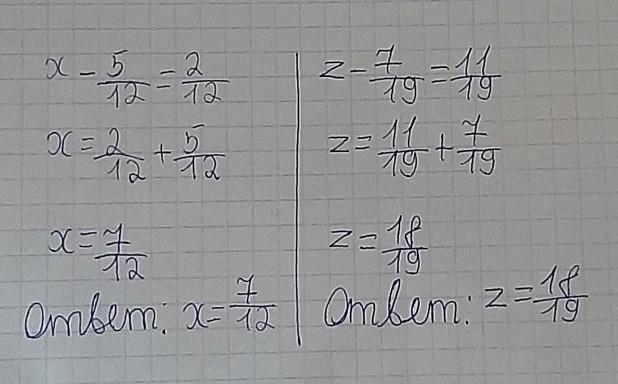 x - 5/12 = 2/12
x = 2/12 + 5/12
x = 7/12
Ответ: x = 7/12
z - 7/19 = 11/19
z = 11/19 + 7/19
z = 18/19
Ответ: z = 18/19